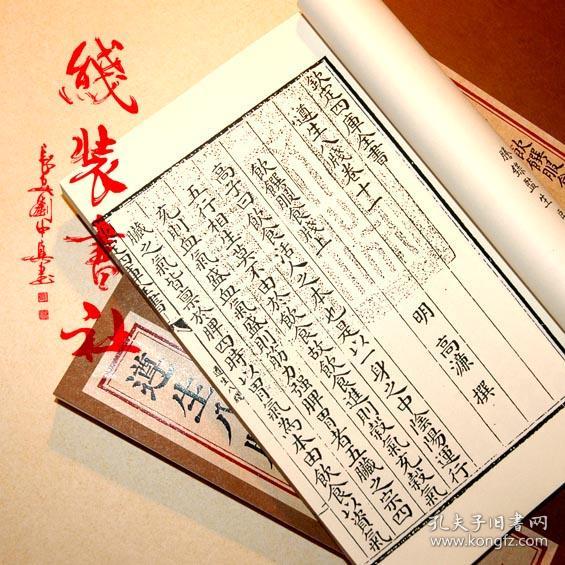 綫装書社
欽定四庫全書
遵生八牋卷十一
明 高濂 撰
飲饌服食牋上
高子曰飲食活人之本也是以一身之中陰陽運行
五行相生莫不由於飲食故飲食進則穀氣充穀氣
充則血氣盛血氣盛則筋力強脾胃者五臟之宗四
臟之氣皆稟於脾四時以胃氣為本由飲食以資氣
四庫全書
飲饌服食
遵生八牋
孔夫子旧書网
www.kongfz.com